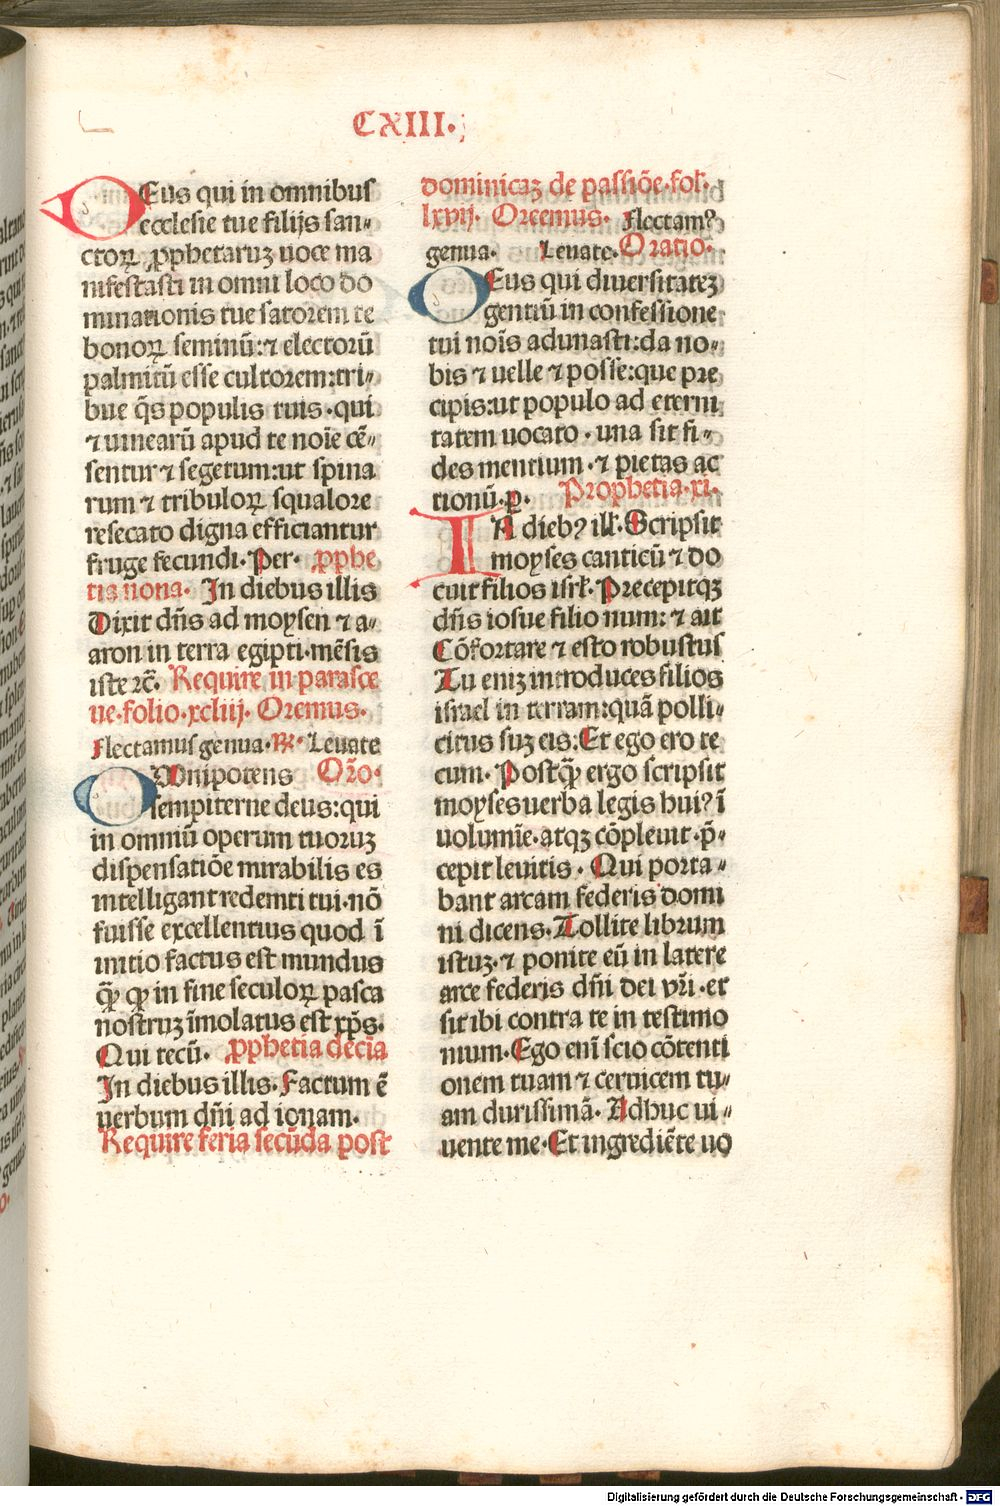 CXIII.
DEus qui in omnibus
ecclesie tue filijs san-
ctoꝝ ꝓphetaruꝫ uoce ma
nifestasti in omni loco do
minationis tue satorem te
bonoꝝ seminū:⁊ electorū
palmitū esse cultorem:tri-
bue q̄s populis tuis.qui
⁊ uinearū apud te noīe cē-
sentur ⁊ segetum:ut spina
rum ⁊ tribuloꝝ squalore
resecato digna efficiantur
fruge fecundi. Per. ꝓphe
tia nona. In diebus illis
Dixit dn̄s ad moysen ⁊ a-
aron in terra egipti.mēsis
iste ⁊c̄. Require in parasce
ue.folio.xcliij. Oremus.
Flectamus genua. ℟. Leuate
OMnipotens Or̄o.
sempiterne deus:qui
in omniū operum tuoruꝫ
dispensatiōe mirabilis es
intelligant redemti tui.nō
fuisse excellentius quod ī
initio factus est mundus
q̄ꝫ ꝙ in fine seculoꝝ pasca
nostruꝫ īmolatus est xp̄s.
Qui tecū. ꝓphetia decīa
In diebus illis. Factum ē
uerbum dn̄i ad ionam.
Require feria secūda post
dominicaꝫ de passiōe.fol.
lxvij. Oreemus. Flectamꝰ
genua. Leuate. Oratio.
DEus qui diuersitateꝫ
gentiū in confessione
tui noīs adunasti:da no-
bis ⁊ uelle ⁊ posse:que pre
cipis:ut populo ad eterni
tatem uocato. una sit fi-
des mentium.⁊ pietas ac
tionū.ꝑ. Prophetia.xi.
IN diebꝰ ill̄. Scripsit
moyses canticū ⁊ do
cuit filios isrl̄. Precepitqꝫ
dn̄s iosue filio num: ⁊ ait
Cōfortare ⁊ esto robustus
Tu eniꝫ introduces filios
israel in terram:quā polli-
citus suꝫ eis: Et ego ero te
cum. Postq̄ꝫ ergo scripsit
moyses uerba legis huiꝰ ī
uolumīe.atqꝫ cōpleuit.p̄-
cepit leuitis. Qui porta-
bant arcam federis domi
ni dicens. Tollite librum
istuꝫ.⁊ ponite eū in latere
arce federis dn̄i dei vr̄i.et
sit ibi contra te in testimo
nium. Ego enī scio cōtenti
onem tuam ⁊ ceruicem tu-
am durissimā. Adhuc ui-
uente me. Et ingrediēte uo
Digitalisierung gefördert durch die Deutsche Forschungsgemeinschaft - DFG